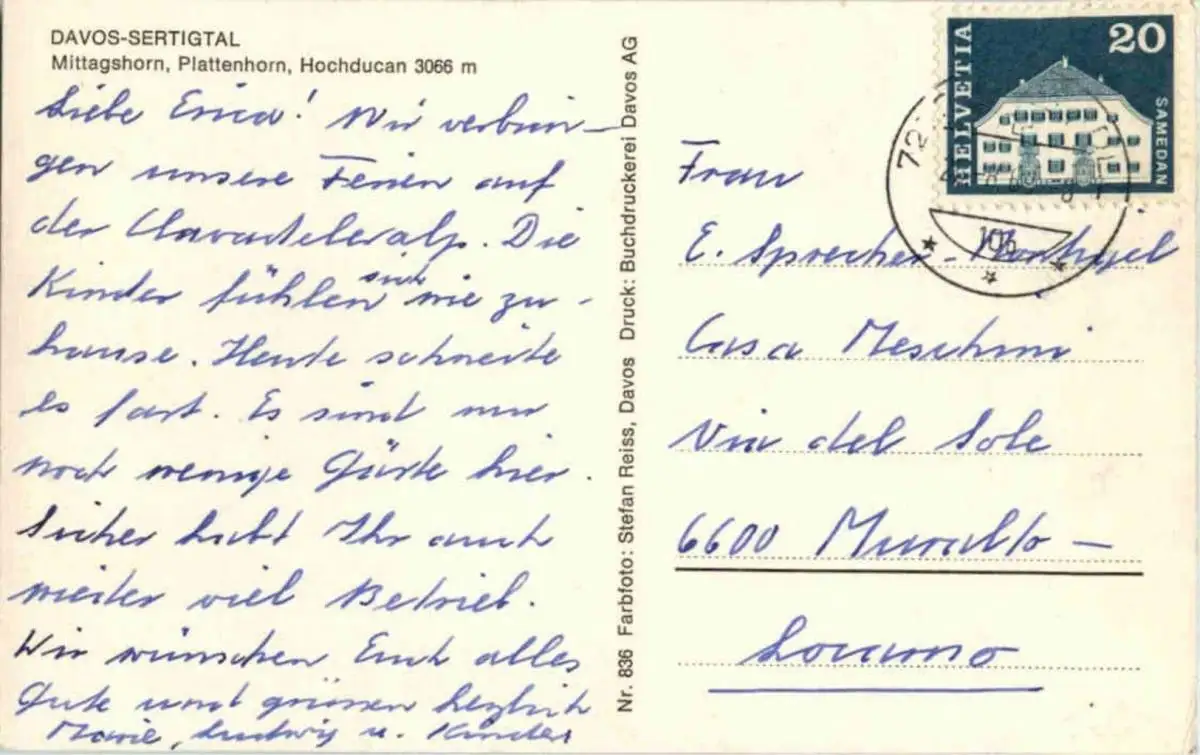 DAVOS-SERTIGTAL
Mittagshorn, Plattenhorn, Hochducan 3066 m
Liebe Erica! Wir verbrin-
gen unsere Ferien auf
der Clavadeleralp. Die
Kinder fühlen sich wie zu-
hause. Heute schneite
es fast. Es sind nur
noch wenige Gäste hier.
Sicher habt Ihr auch
wieder viel Betrieb.
Wir wünschen Euch alles
Gute und grüssen herzlich
Marie, Ludwig u. Kinder
Nr. 836 Farbfoto: Stefan Reiss, Davos Druck: Buchdruckerei Davos AG
HELVETIA
20
SAMEDAN
72
106
Frau
E. Sprecher-
Casa Meschini
Via del Sole
6600 Muralto -
Locarno